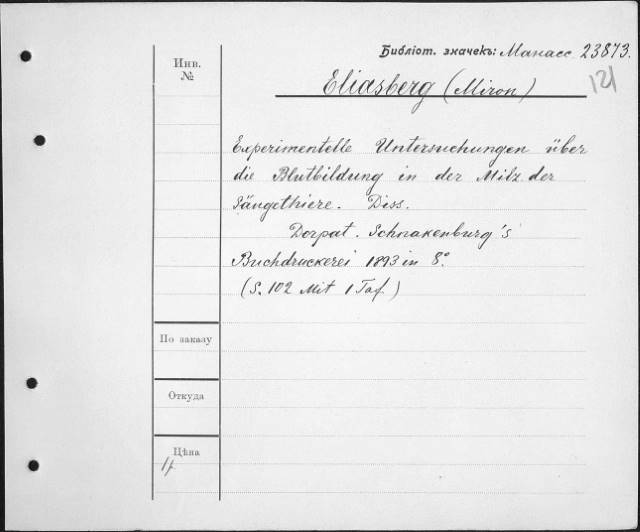 Библіот. значекъ: Манасс. 23873.
121
Инв.
№
Eliasberg (Miron)
Experimentelle Untersuchungen über
die Blutbildung in der Milz der
Säugethiere. Diss.
Dorpat. Schnakenburg's
Buchdruckerei 1893 in 8°.
(S. 102 Mit 1 Taf.)
По заказу
Откуда
Цѣна